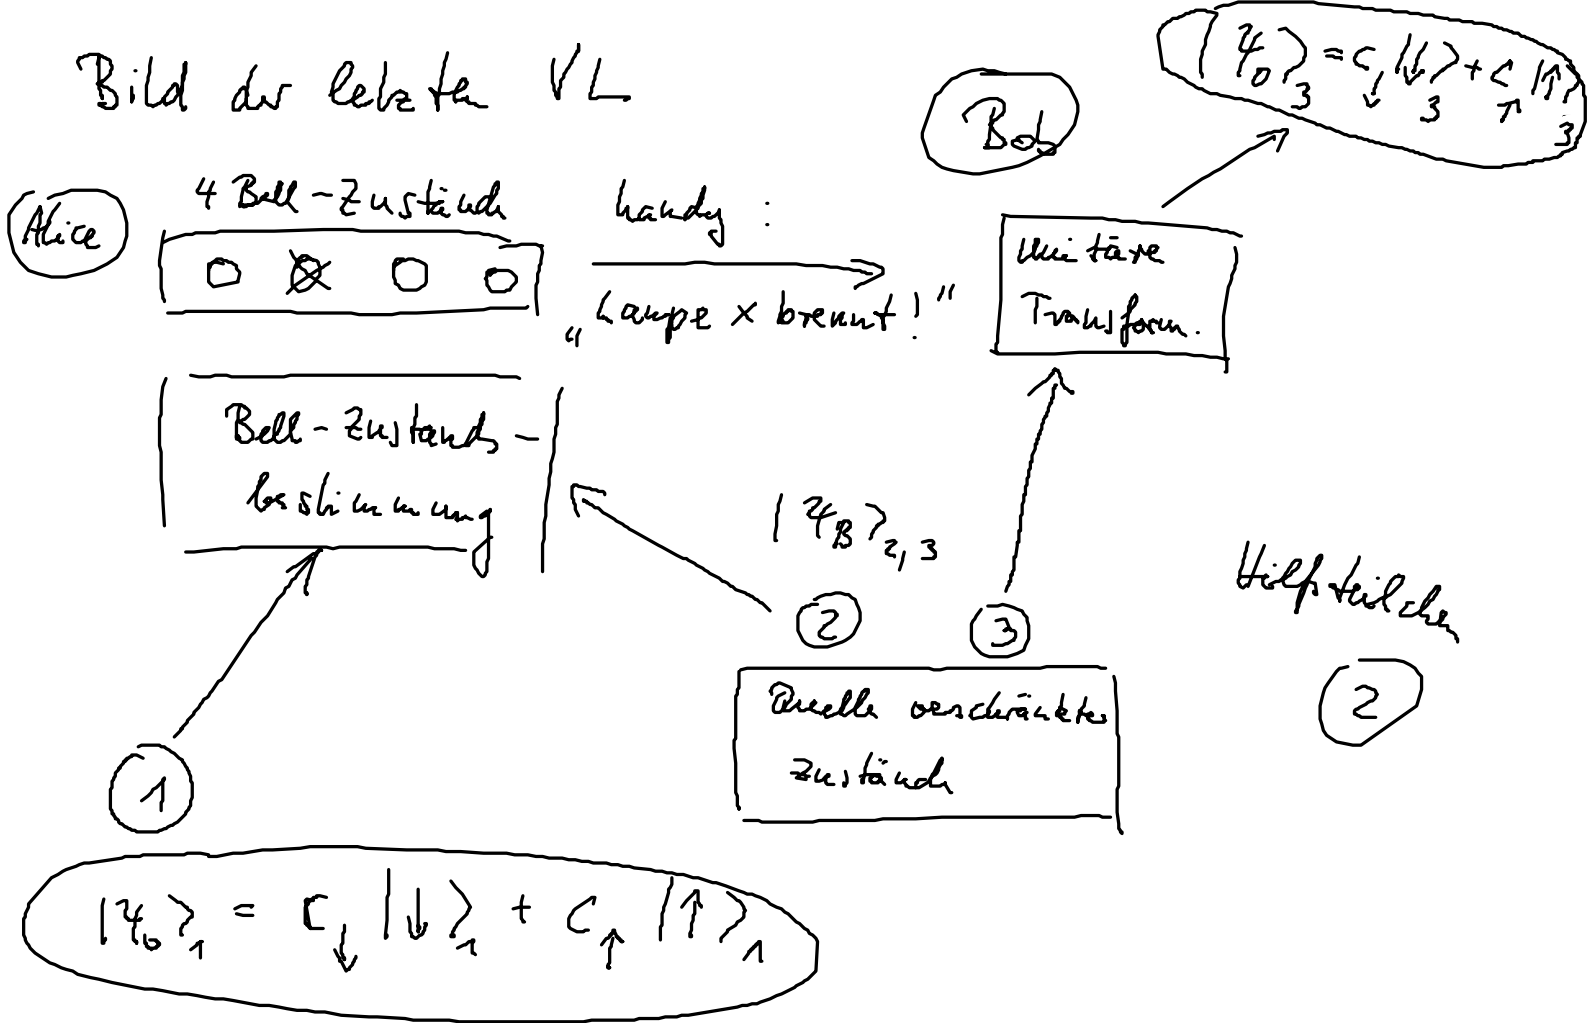 Bild der letzten VL
|ψ₀⟩₃ = c↓|↓⟩₃ + c↑|↑⟩₃
Bob
Alice
4 Bell-Zustände
handy :
„Lampe x brennt!“
Unitäre
Transform.
Bell-Zustands-
bestimmung
|ψ_B⟩₂,₃
Hilfsteilchen
2
2
3
Quelle verschränkter
Zustände
1
|ψ₀⟩₁ = c↓|↓⟩₁ + c↑|↑⟩₁